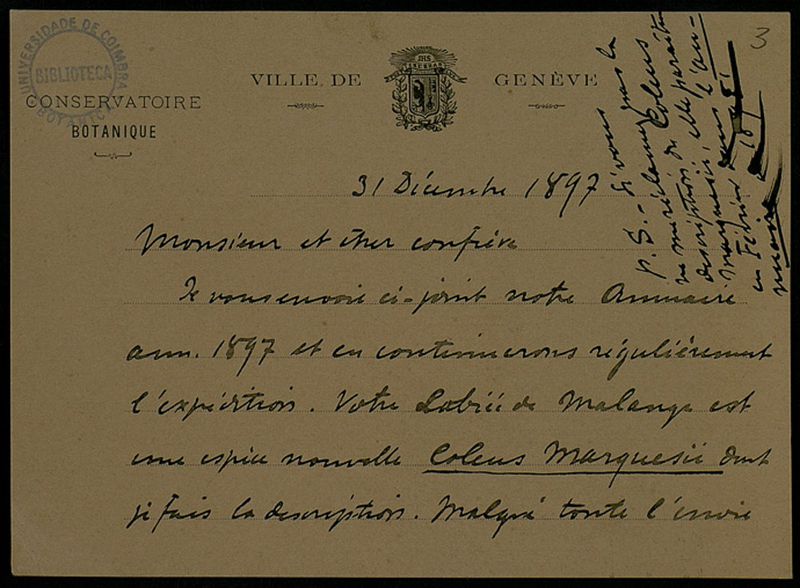 UNIVERSIDADE DE COIMBRA
BIBLIOTECA
BOTANICA
VILLE DE GENÈVE
CONSERVATOIRE
BOTANIQUE
3
31 Décembre 1897
Monsieur et cher confrère
Je vous envoie ci-joint notre Annuaire
ann. 1897 et en continuerons régulièrement
l'expédition. Votre Labiée de Malange est
une espèce nouvelle Coleus Marquesii dont
je fais la description. Malgré toute l'envie
P. S. - Si vous pas la
ne me réclamez Coleus
description du paraitra
Marquesii, elle l'an-
en Février dans
nuaire 189